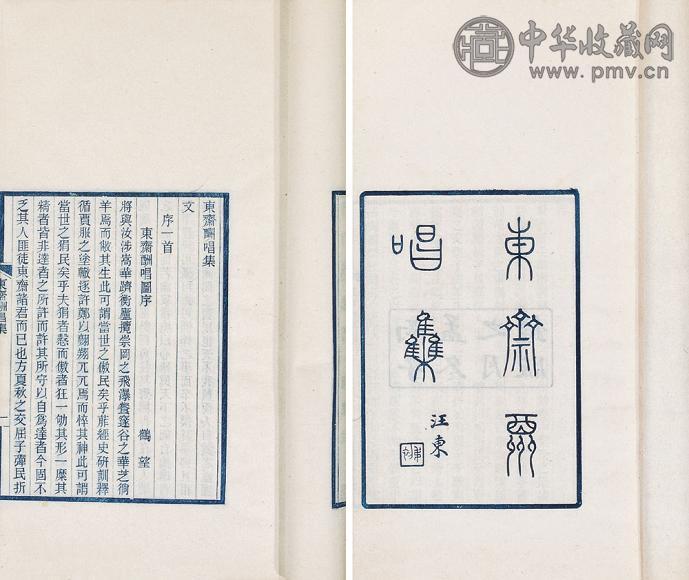 中华收藏网
www.pmv.cn
東齋酬
唱集
汪東
東齋酬唱集
文
序一首
東齋酬唱圖序
鶴望
將與汝涉嵩華躋衡廬攬崇岡之飛瀑邃谷之華芝徜
羊焉而傲其生此可謂當世之傲民矣乎葄經史研訓釋
循賈服之塗轍逐許鄭以翺翔兀兀焉而悴其神此可謂
當世之狷民矣乎夫狷者慤而傲者狂一劬其形一縻其
精者皆非達者之所許而許其所守以自爲達者今固不
乏其人匪徒東齋諸君而已也方夏秋之交屈子彈民折
東齋酬唱集
一